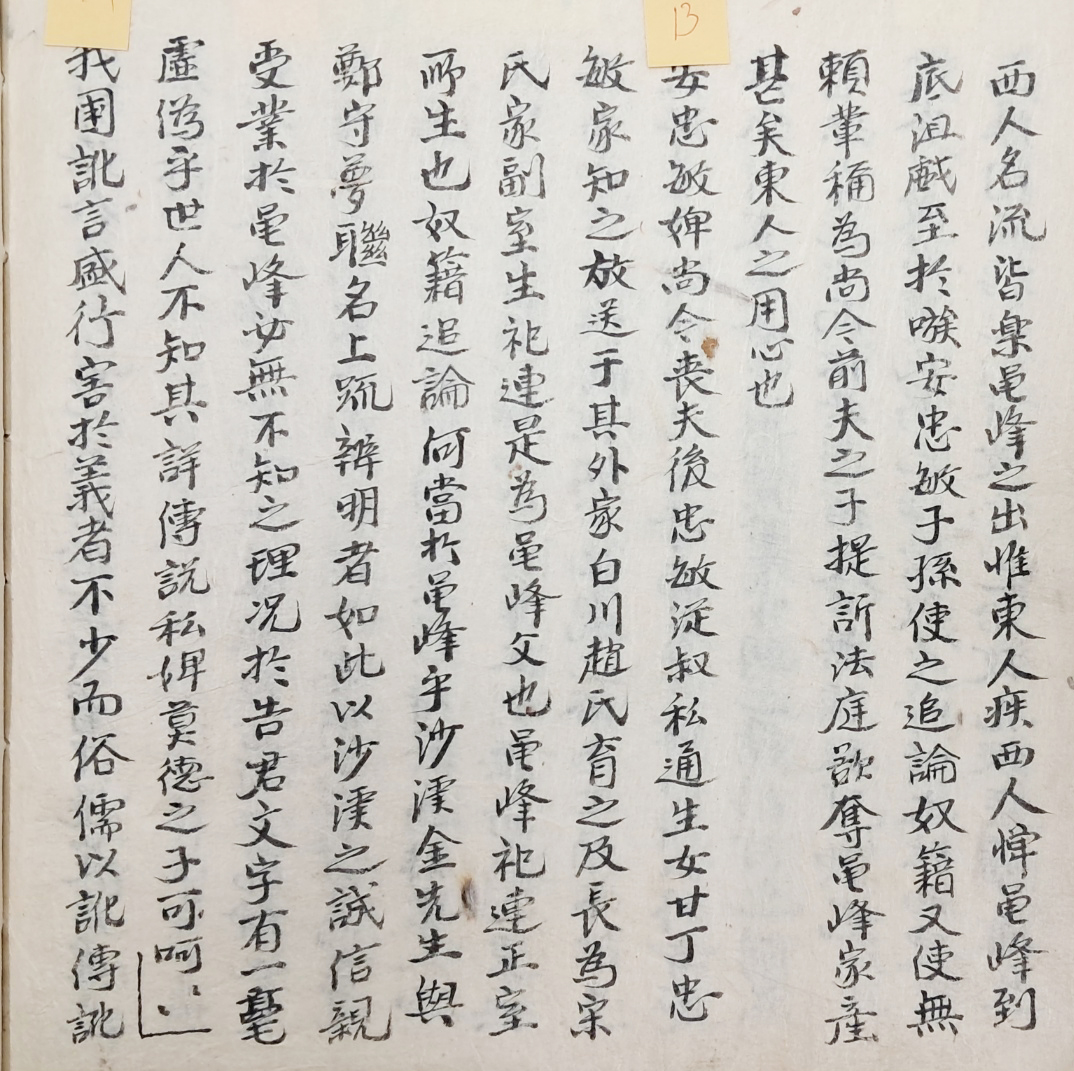 13
西人名流皆樂黽峰之出惟東人疾西人憚黽峰到
底沮戱至於嗾安忠敏子孫使之追論奴籍又使無
賴輩稱為尚令前夫之子提訴法庭欲奪黽峰家產
甚矣東人之用心也
安忠敏婢尚令喪夫後忠敏從叔私通生女甘丁忠
敏家知之放送于其外家白川趙氏育之及長為宋
氏家副室生祀連是為黽峰父也黽峰祀連正室
所生也奴籍追論何當於黽峰乎沙溪金先生與
鄭守夢聯名上疏辨明者如此以沙溪之誠信親
受業於黽峰必無不知之理况於告君文字有一毫
虛僞乎世人不知其詳傳說私婢莫德之子可呵
我國訛言盛行害於義者不少而俗儒以訛傳訛